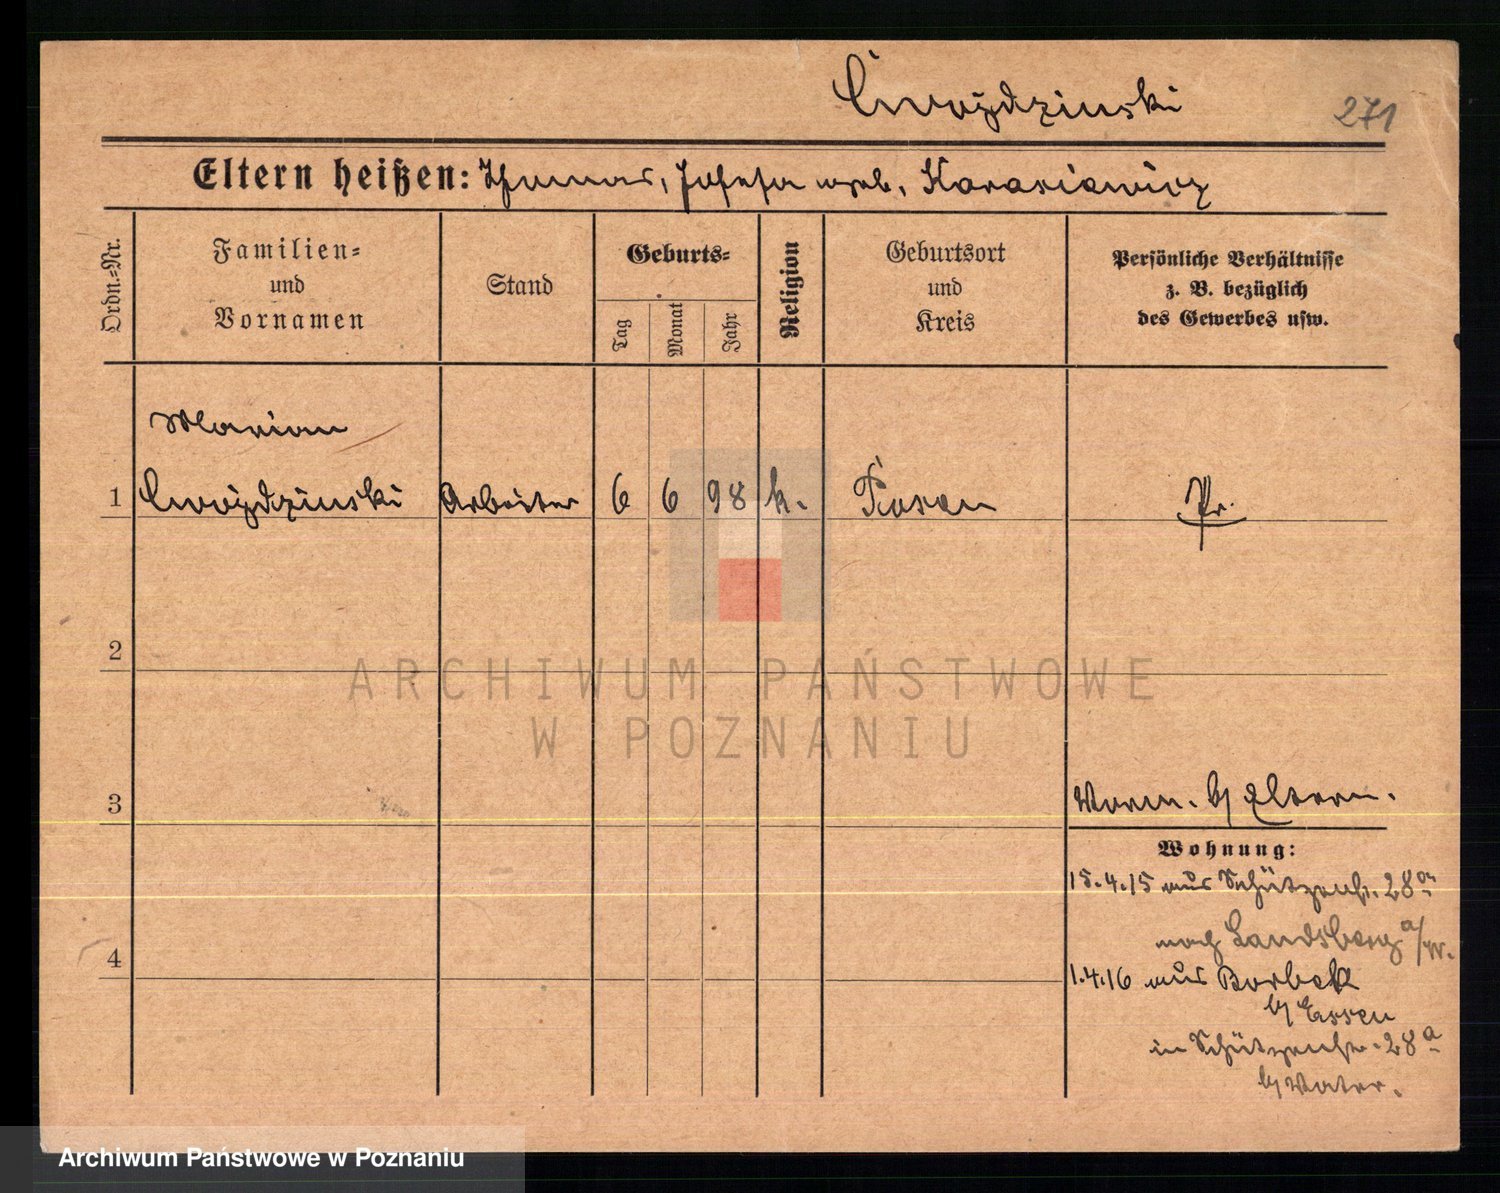 Cwojdzinski
271
Eltern heißen: Thomas, Josefa geb.
Ordn.=Nr.
Familien=
und
Vornamen
Stand
Geburts=
Tag
Monat
Jahr
Religion
Geburtsort
und
Kreis
Persönliche Verhältnisse
z. B. bezüglich
des Gewerbes usw.
Marian
1 Cwojdzinski Arbeiter 6 6 98 k. Posen Pr.
2
ARCHIWUM PAŃSTWOWE
W POZNANIU
3
b/ Eltern.
Wohnung:
15.4.15 aus Schützenstr. 28a
nach Landsberg a/W.
4
1.4.16 aus Borbek
b/ Essen
in Schützenstr. 28a
b/ Vater.
Archiwum Państwowe w Poznaniu